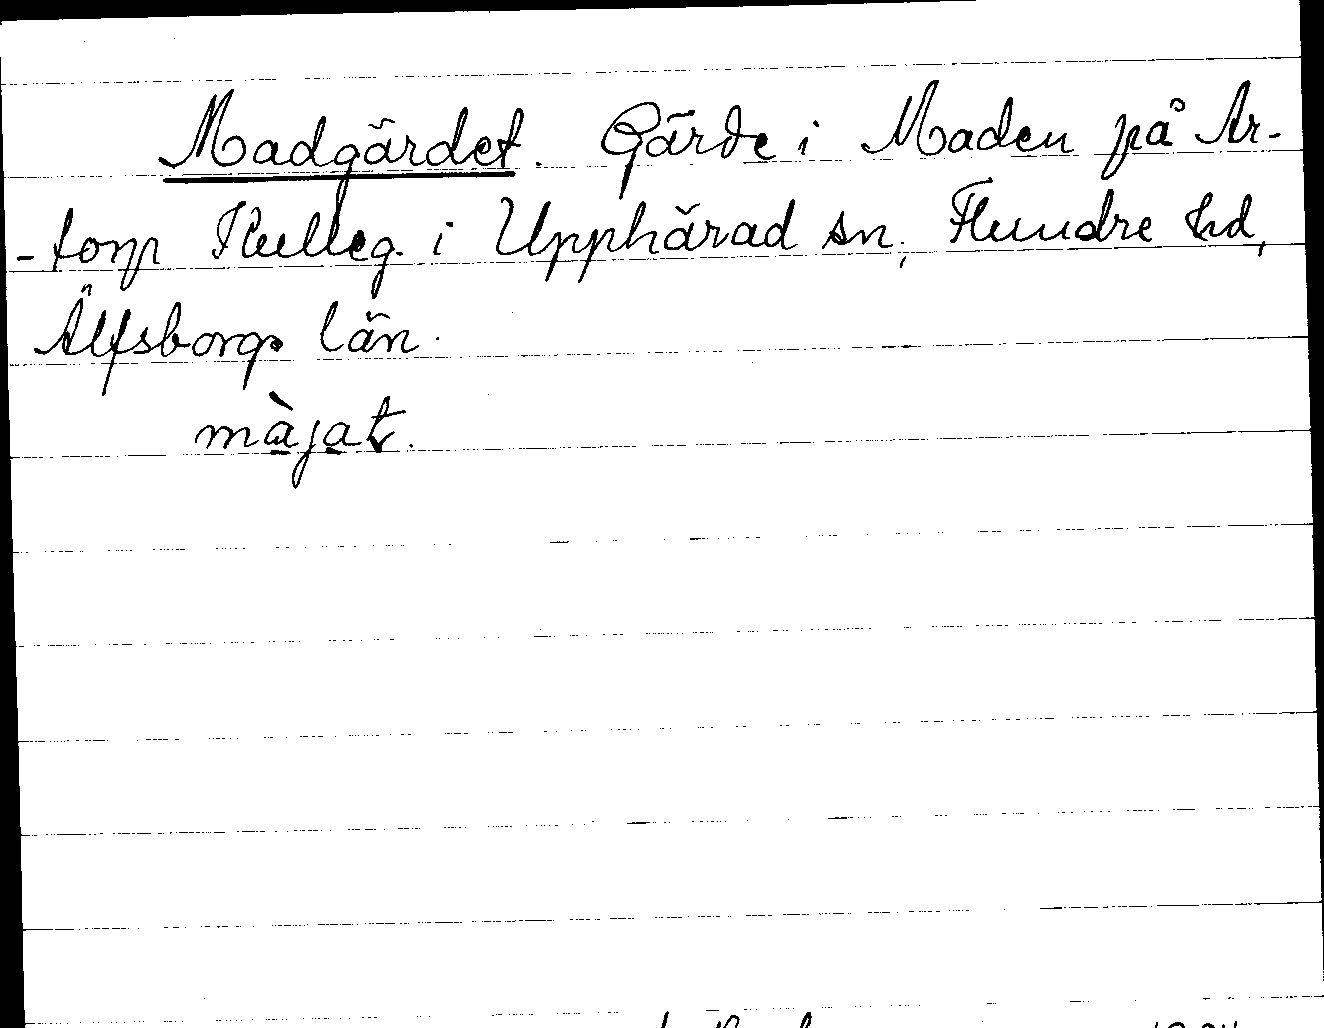 Madgärdet. Gärde i Maden på Ar-
-torp Kulleg. i Upphärad sn, Flundre hd,
Älfsborgs län.
màjat.